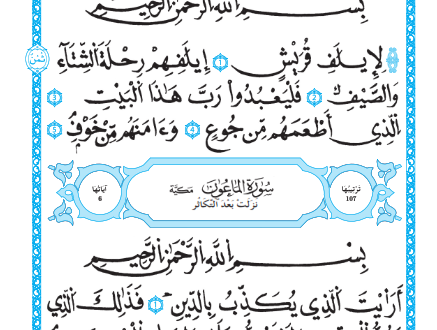 بِسْمِ اللَّهِ الرَّحْمَٰنِ الرَّحِيمِ
لِإِيلَٰفِ قُرَيْشٍ 1 إِيلَٰفِهِمْ رِحْلَةَ اَلشِّتَآءِ
ثمن
وَالصَّيْفِ 2 فَلْيَعْبُدُواْ رَبَّ هَٰذَا اَلْبَيْتِ 3
اِلذِي أَطْعَمَهُم مِّن جُوعٍ 4 وَءَامَنَهُم مِّنْ خَوْفٍ 5
ترتيبها 107
سُورَةُ الْمَاعُونِ مَكِّيَّة
نزلت بعد التكاثر
آياتها 6
بِسْمِ اللَّهِ الرَّحْمَٰنِ الرَّحِيمِ
أَرَٰيْتَ اَلذِي يُكَذِّبُ بِالدِّينِ 1 فَذَٰلِكَ اَلذِي